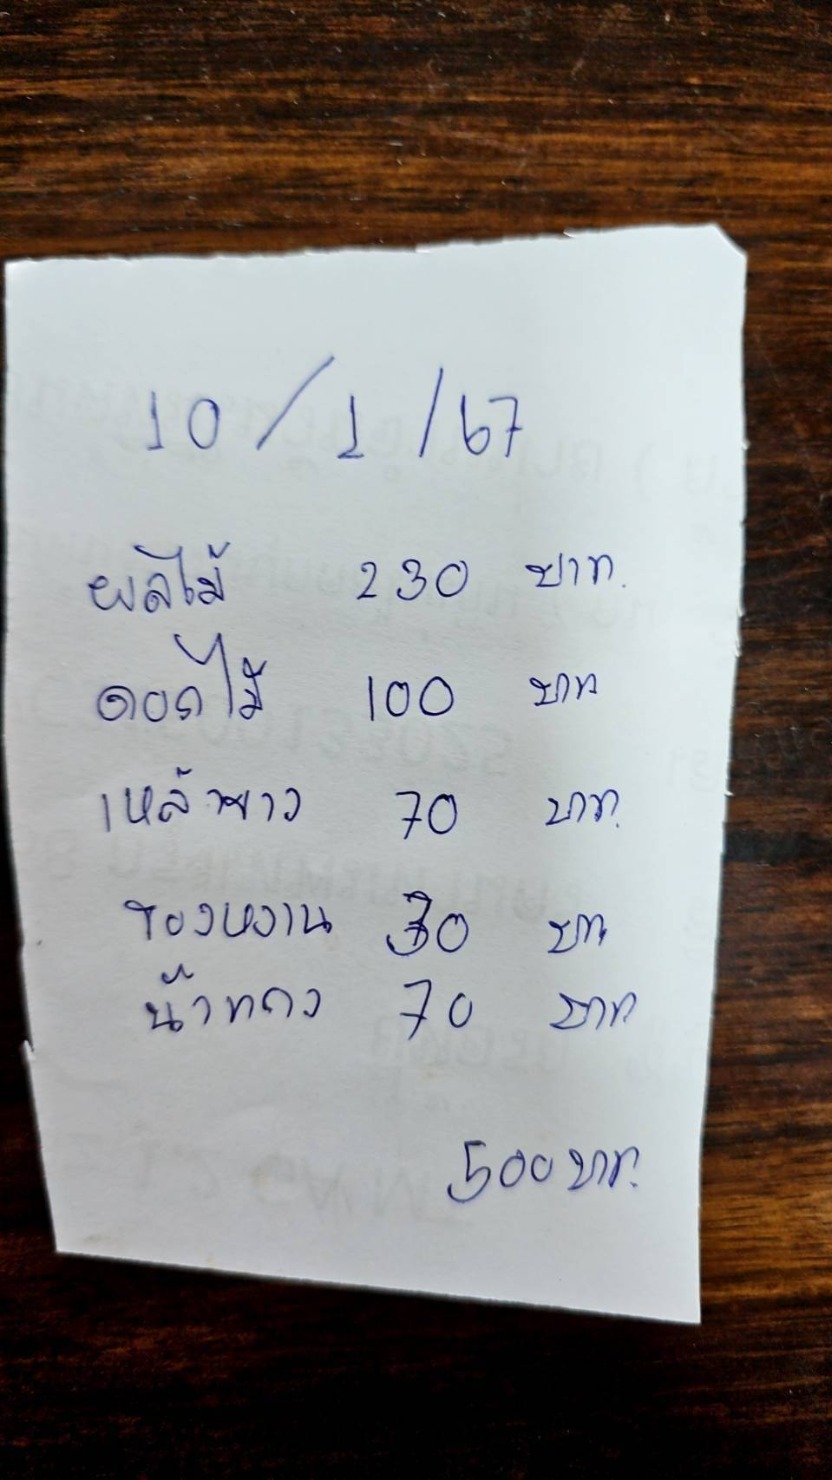 10/1/67
ผลไม้ 230 บาท.
ดอกไม้ 100 บาท
เหล้าขาว 70 บาท.
ของหวาน 30 บาท
น้ำแดง 70 บาท
500 บาท.